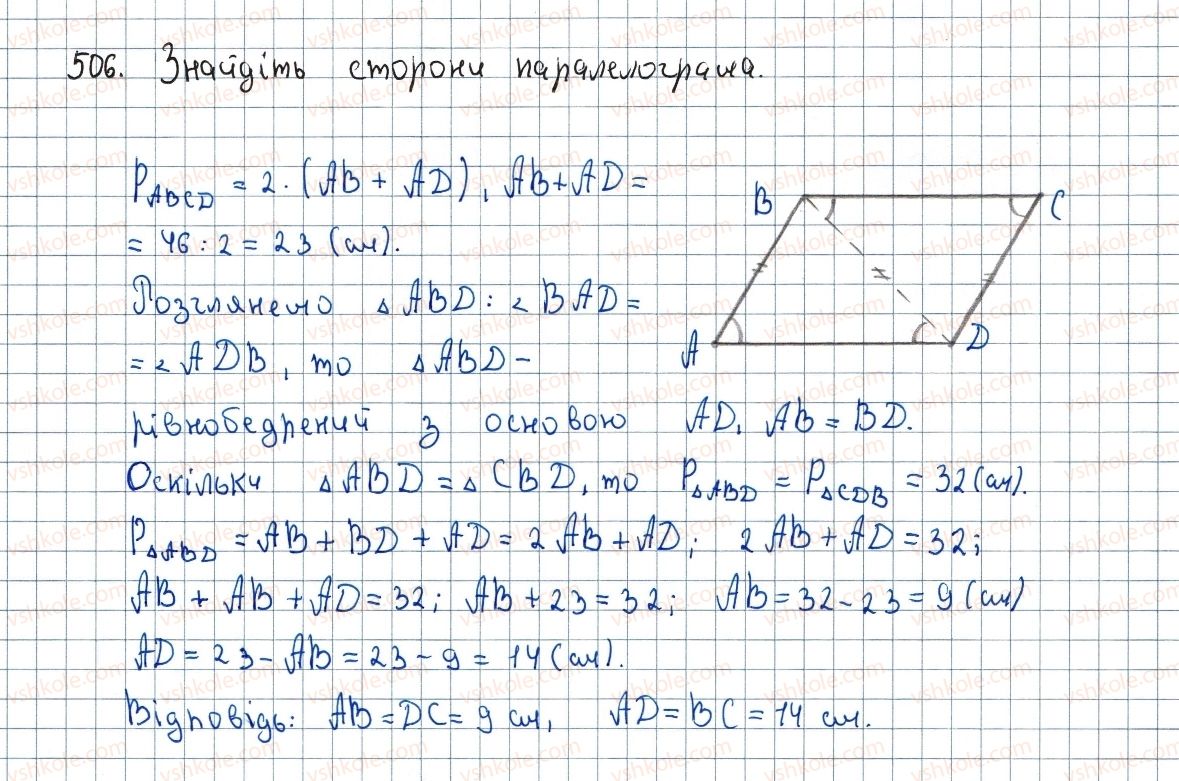 506. Знайдіть сторони паралелограма.
P ABCD = 2·(AB + AD), AB + AD =
= 46 : 2 = 23 (см).
Розглянемо △ABD: ∠BAD =
= ∠ADB, то △ABD –
рівнобедрений з основою AD, AB = BD.
Оскільки △ABD = △CBD, то P△ABD = P△CDB = 32 (см).
P△ABD = AB + BD + AD = 2AB + AD; 2AB + AD = 32;
AB + AB + AD = 32; AB + 23 = 32; AB = 32 - 23 = 9 (см)
AD = 23 - AB = 23 - 9 = 14 (см).
Відповідь: AB = DC = 9 см, AD = BC = 14 см.
B
C
A
D
vshkole.com